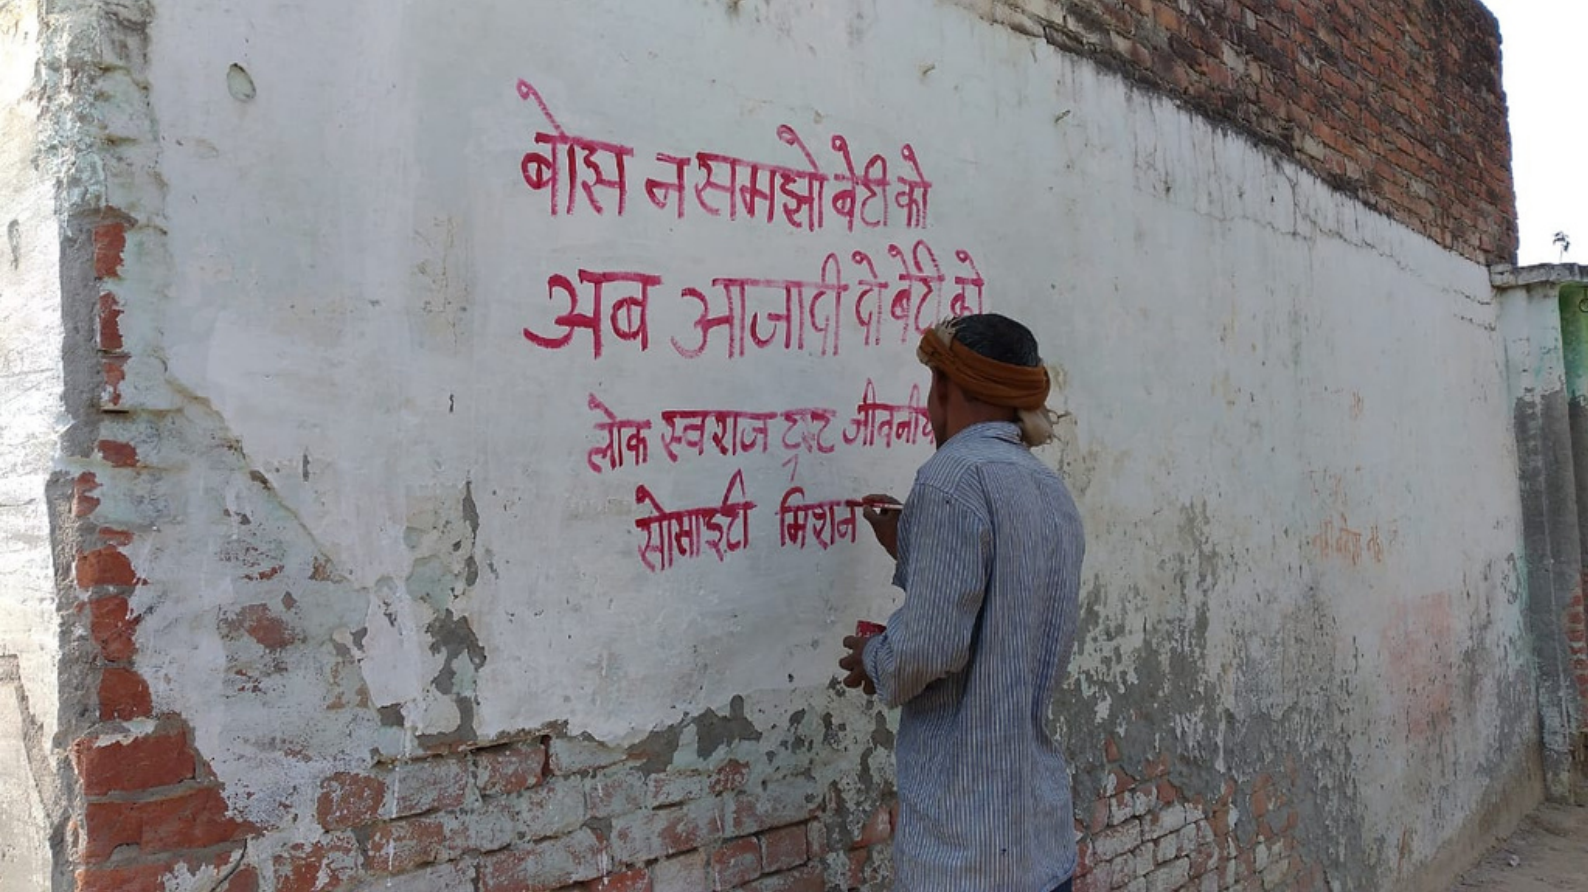 बोस न समझो बेटी को
अब आजादी दो बेटी को
लोक स्वराज ट्रस्ट
सोसाइटी मिशन